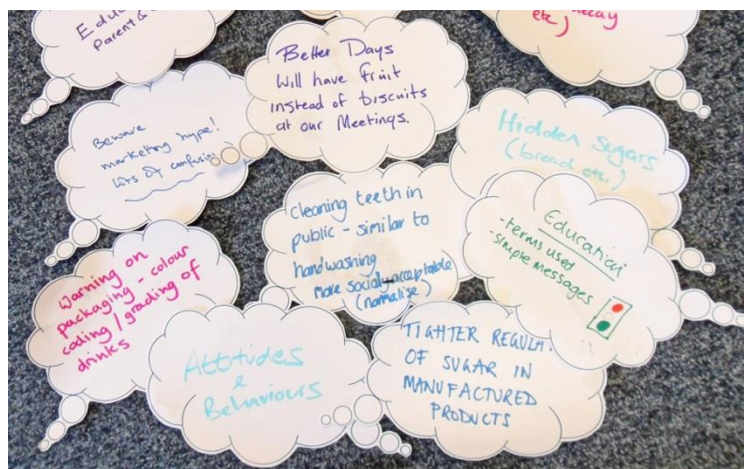 Parent &
etc)
Better Days
Will have fruit
instead of biscuits
at our Meetings.
Beware
marketing hype!
lots of confusion
Hidden Sugars
(bread etc.)
cleaning teeth in
public - similar to
handwashing
more socially acceptable
(normalise)
Education
- terms used
- simple messages
Warning on
packaging - colour
coding / grading of
drinks
Attitides
&
Behaviours
TIGHTER
OF SUGAR IN
MANUFACTURED
PRODUCTS